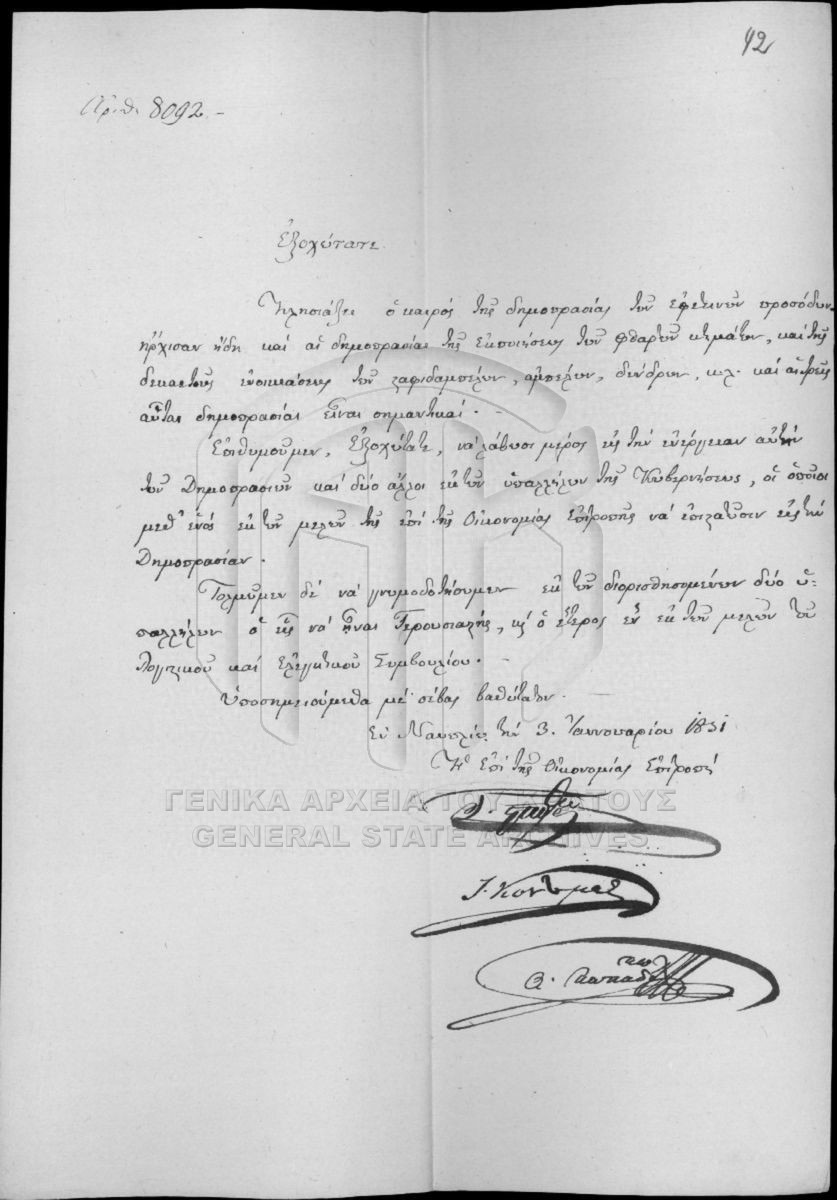 42
Ἀριθ. 8092.-
Ἐξοχώτατε.
Πλησιάζει ὁ καιρὸς τῆς δημοπρασίας τῶν ἐφετεινῶν προσόδων·
ἤρχισαν ἤδη καὶ αἱ δημοπρασίαι τῆς ἐκποιήσεως τῶν φθαρτῶν κτημάτων, καὶ τῆς
δεκαετοῦς ἐνοικιάσεως τῶν σταφιδαμπέλων, ἀμπέλων, δένδρων, κ.λ. καὶ αἱ τρεῖς
αὗται δημοπρασίαι εἶναι σημαντικαί. -
Ἐπιθυμοῦμεν, Ἐξοχώτατε, νὰ λάβωσι μέρος εἰς τὴν ἐνέργειαν αὐτὴν
τῶν Δημοπρασιῶν καὶ δύο ἄλλοι ἐκ τῶν ὑπαλλήλων τῆς Κυβερνήσεως, οἱ ὁποῖοι
μεθ' ἑνὸς ἐκ τῶν μελῶν τῆς ἐπὶ τῆς Οἰκονομίας Ἐπιτροπῆς νὰ ἐπιστατῶσιν εἰς τὴν
Δημοπρασίαν.
Τολμῶμεν δὲ νὰ γνωμοδοτήσωμεν ἐκ τῶν διορισθησομένων δύο ὑ-
παλλήλων ὁ εἷς νὰ ἦναι Γερουσιαστής, κ' ὁ ἕτερος ἓν ἐκ τῶν μελῶν τοῦ
Λογιστικοῦ καὶ Ἐλεγκτικοῦ Συμβουλίου. -
Ὑποσημειούμεθα μὲ σέβας βαθύτατον.
Ἐν Ναυπλίῳ τὴν 3. Ἰαννουαρίου 1831
Ἡ ἐπὶ τῆς Οἰκονομίας Ἐπιτροπή
Ι. Κοντουμᾶς
ΓΕΝΙΚΑ ΑΡΧΕΙΑ ΤΟΥ ΚΡΑΤΟΥΣ
GENERAL STATE ARCHIVES